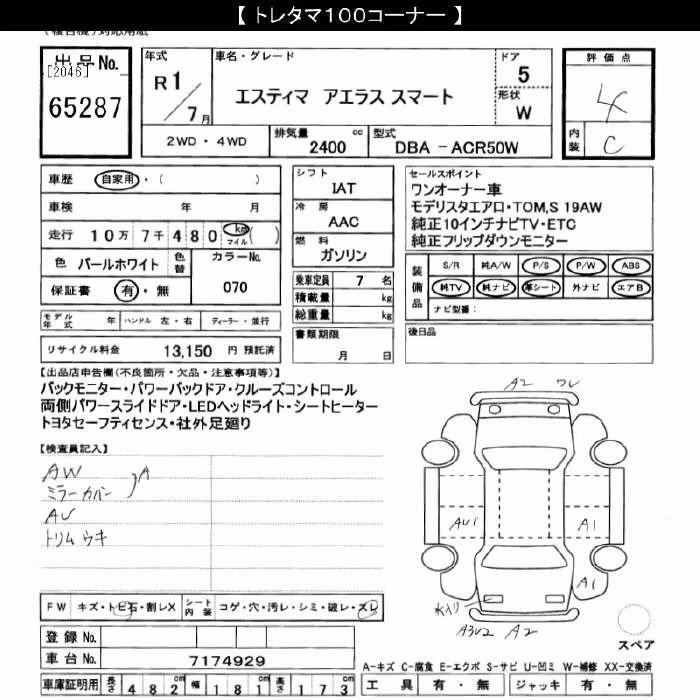 【 トレタマ100コーナー 】
出品No. [2046] 65287
年式 R1/7月
車名・グレード エスティマ アエラス スマート
ドア 5
形状 W
評価点 4
内装 C
2WD・4WD
排気量 2400 cc
型式 DBA - ACR50W
車歴 自家用・( )
車検 年 月
走行 10万7千480 km マイル ( )
色 パールホワイト 色替 カラーNo. 070
保証書 有・無
モデル年式 年 ハンドル 左・右 ディーラー・並行
リサイクル料金 13,150 円 預託済
シフト IAT
冷房 AAC
燃料 ガソリン
乗車定員 7 名
積載量 kg
総重量 kg
書類期限 月 日
セールスポイント
ワンオーナー車
モデリスタエアロ・TOM,S 19AW
純正10インチナビTV・ETC
純正フリップダウンモニター
装備品 S/R 純A/W P/S P/W ABS
純TV 純ナビ 革シート 外ナビ エアB
ナビ型番:
後日品
【出品店申告欄(不良箇所・欠品・注意事項等)】
バックモニター・パワーバックドア・クルーズコントロール
両側パワースライドドア・LEDヘッドライト・シートヒーター
トヨタセーフティセンス・社外足廻り
【検査員記入】
AW
ミラーカバー )A
AU
トリムウキ
A2 ワレ
AU1 A1
A1
水入り
A3U2 A2
スペア
FW キズ・トビ石・割レX シート内装 コゲ・穴・汚レ・シミ・破レ・スレ
登録No.
車台No. 7174929
車庫証明用 長さ 482 cm 幅 181 cm 高さ 173 cm
A-キズ C-腐食 E-エクボ S-サビ U-凹ミ W-補修 XX-交換済
工具 有・無 ジャッキ 有・無